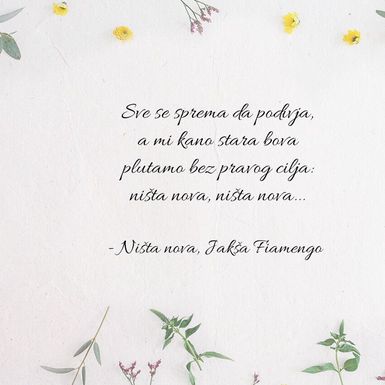 Sve se sprema da podivja,
a mi kano stara bova
plutamo bez pravog cilja:
ništa nova, ništa nova...
-Ništa nova, Jakša Fiamengo